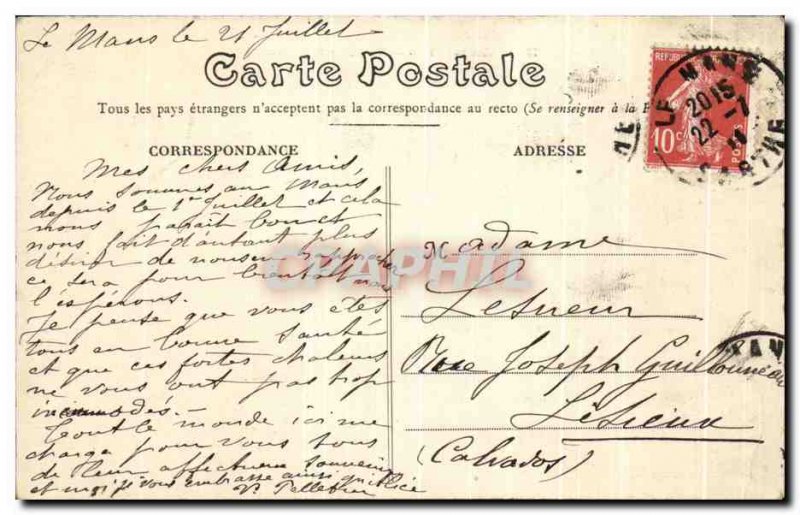 Le Mans le 21 Juillet
Carte Postale
Tous les pays étrangers n'acceptent pas la correspondance au recto (Se renseigner à la
CORRESPONDANCE
ADRESSE
Mes chers Amis,
Nous sommes au Mans
depuis le 1er Juillet et cela
nous paraît bon et
nous fait d'autant plus
désirer de nous rapprocher
ce sera pour bientôt nous
l'espérons.
Je pense que vous êtes
tous en bonne santé
et que ces fortes chaleurs
ne vous ont pas trop
incommodés.-
Tout le monde ici me
charge pour vous tous
de leur affectueux souvenir
et moi je vous embrasse ainsi qu'Alice
Pelletier
Madame
Lesueur
Rue Joseph Guillonneau
Lisieux
(Calvados)
REPUB
10c
POSTES
LE MANS
20 15
22 - 7
11
SARTHE
CPAPHIL